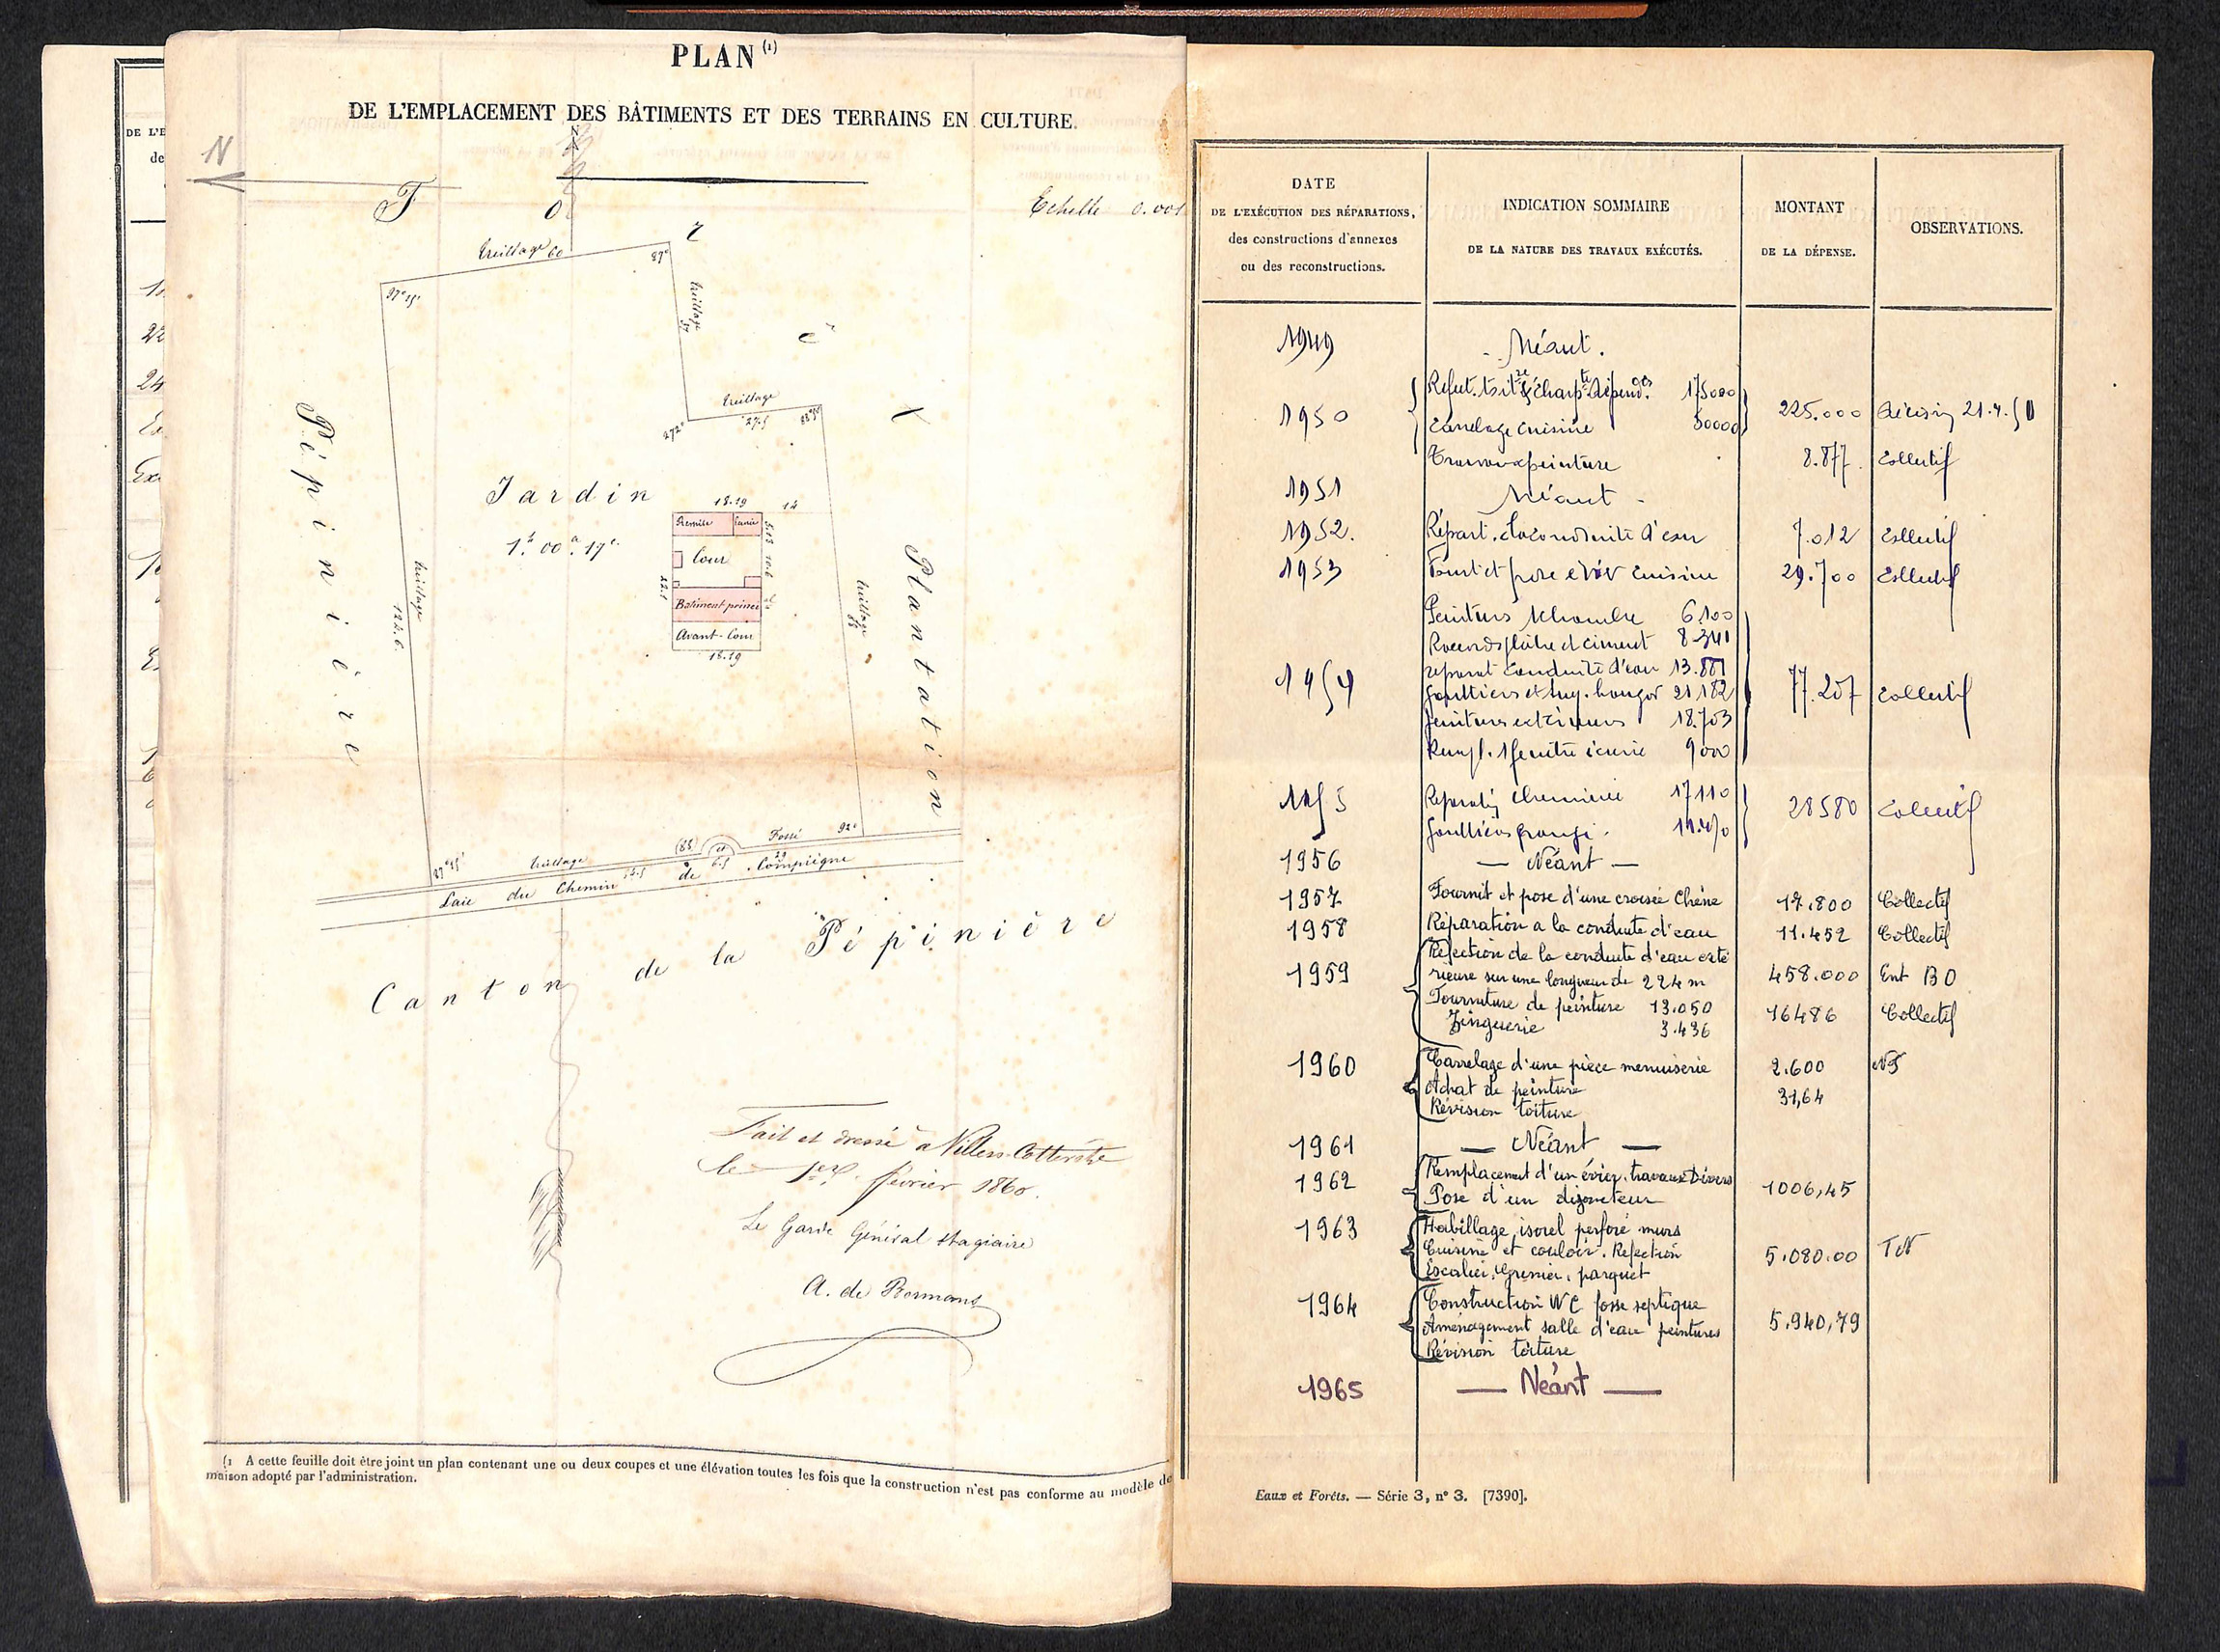 PLAN (1)
DE L'EMPLACEMENT DES BÂTIMENTS ET DES TERRAINS EN CULTURE.
N
N
Echelle 0.001
O
treillage 60
87°
97° 15'
treillage
37
treillage
27.5
272°
Pépinière
Jardin
1.h 00.a 17c.
18.19
14
Remise
Ecurie
Cour
Batiment princi
Avant-Cour
18.19
22.1
treillage
122.6
treillage
Plantation
Fossé
92°
treillage
Laie du Chemin de Compiègne
Canton de la Pépinière
Fait et dressé à Villers-Cotterêts
le 1er février 1860.
Le Garde Général stagiaire
A. de
(1 A cette feuille doit être joint un plan contenant une ou deux coupes et une élévation toutes les fois que la construction n'est pas conforme au modèle de
maison adopté par l'administration.
DE L'E
de
22
24
DATE
DE L'EXÉCUTION DES RÉPARATIONS,
des constructions d'annexes
ou des reconstructions.
INDICATION SOMMAIRE
DE LA NATURE DES TRAVAUX EXÉCUTÉS.
MONTANT
DE LA DÉPENSE.
OBSERVATIONS.
1949 Néant.
175000
1950 Carrelage cuisine 50000 225.000 Décision 21.4.50
Travaux peinture 8.877 Collectif
1951 Néant
1952. Réparat. de la conduite d'eau 7.012 Collectif
1953 Fournit et pose évier cuisine 29.700 Collectif
Peinture 1 chambre 6.100
Raccords plâtre et ciment 8.341
reparat conduite d'eau 13.881
21182
1954 77.207 Collectif
Peintures extérieures 18.703
Rempl. 1 fenêtre écurie 9000
1955 Reparation cheminée 17110 28580 Collectif
11.470
1956 — Néant —
1957 Fournit et pose d'une croisée Chêne 17.800 Collectif
1958 Réparation a la conduite d'eau 11.452 Collectif
1959 Refection de la conduite d'eau exté
rieure sur une longueur de 224 m 458.000 Ent BO
Fourniture de peinture 13.050 16486 Collectif
Zinguerie 3.436
1960 Carrelage d'une pièce menuiserie 2.600
Achat de peinture 31,64
Révision toiture
1961 — Néant —
1962 Remplacement d'un évier, travaux Divers 1006,45
Pose d'un disjoncteur
1963 Habillage isorel perforé murs
Cuisine et couloir. Refection 5.080.00
Escalier, Grenier, parquet
1964 Construction WC fosse septique
Aménagement salle d'eau peintures 5.940,79
Révision toiture
1965 — Néant —
Eaux et Forêts. — Série 3, n° 3. [7390].